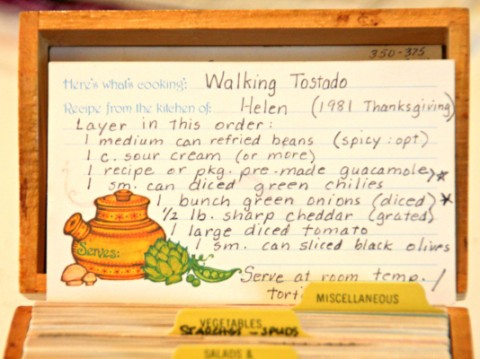 350-375
Here's what's cooking: Walking Tostado
Recipe from the kitchen of: Helen (1981 Thanksgiving)
Layer in this order:
1 medium can refried beans (spicy:opt)
1 c. sour cream (or more)
1 recipe or pkg. pre-made guacamole *
1 sm. can diced green chilies
1 bunch green onions (diced) *
1/2 lb. sharp cheddar (grated)
1 large diced tomato
1 sm. can sliced black olives
Serves:
Serve at room temp. /
MISCELLANEOUS
VEGETABLES
STARCHES - SPUDS
SALADS &